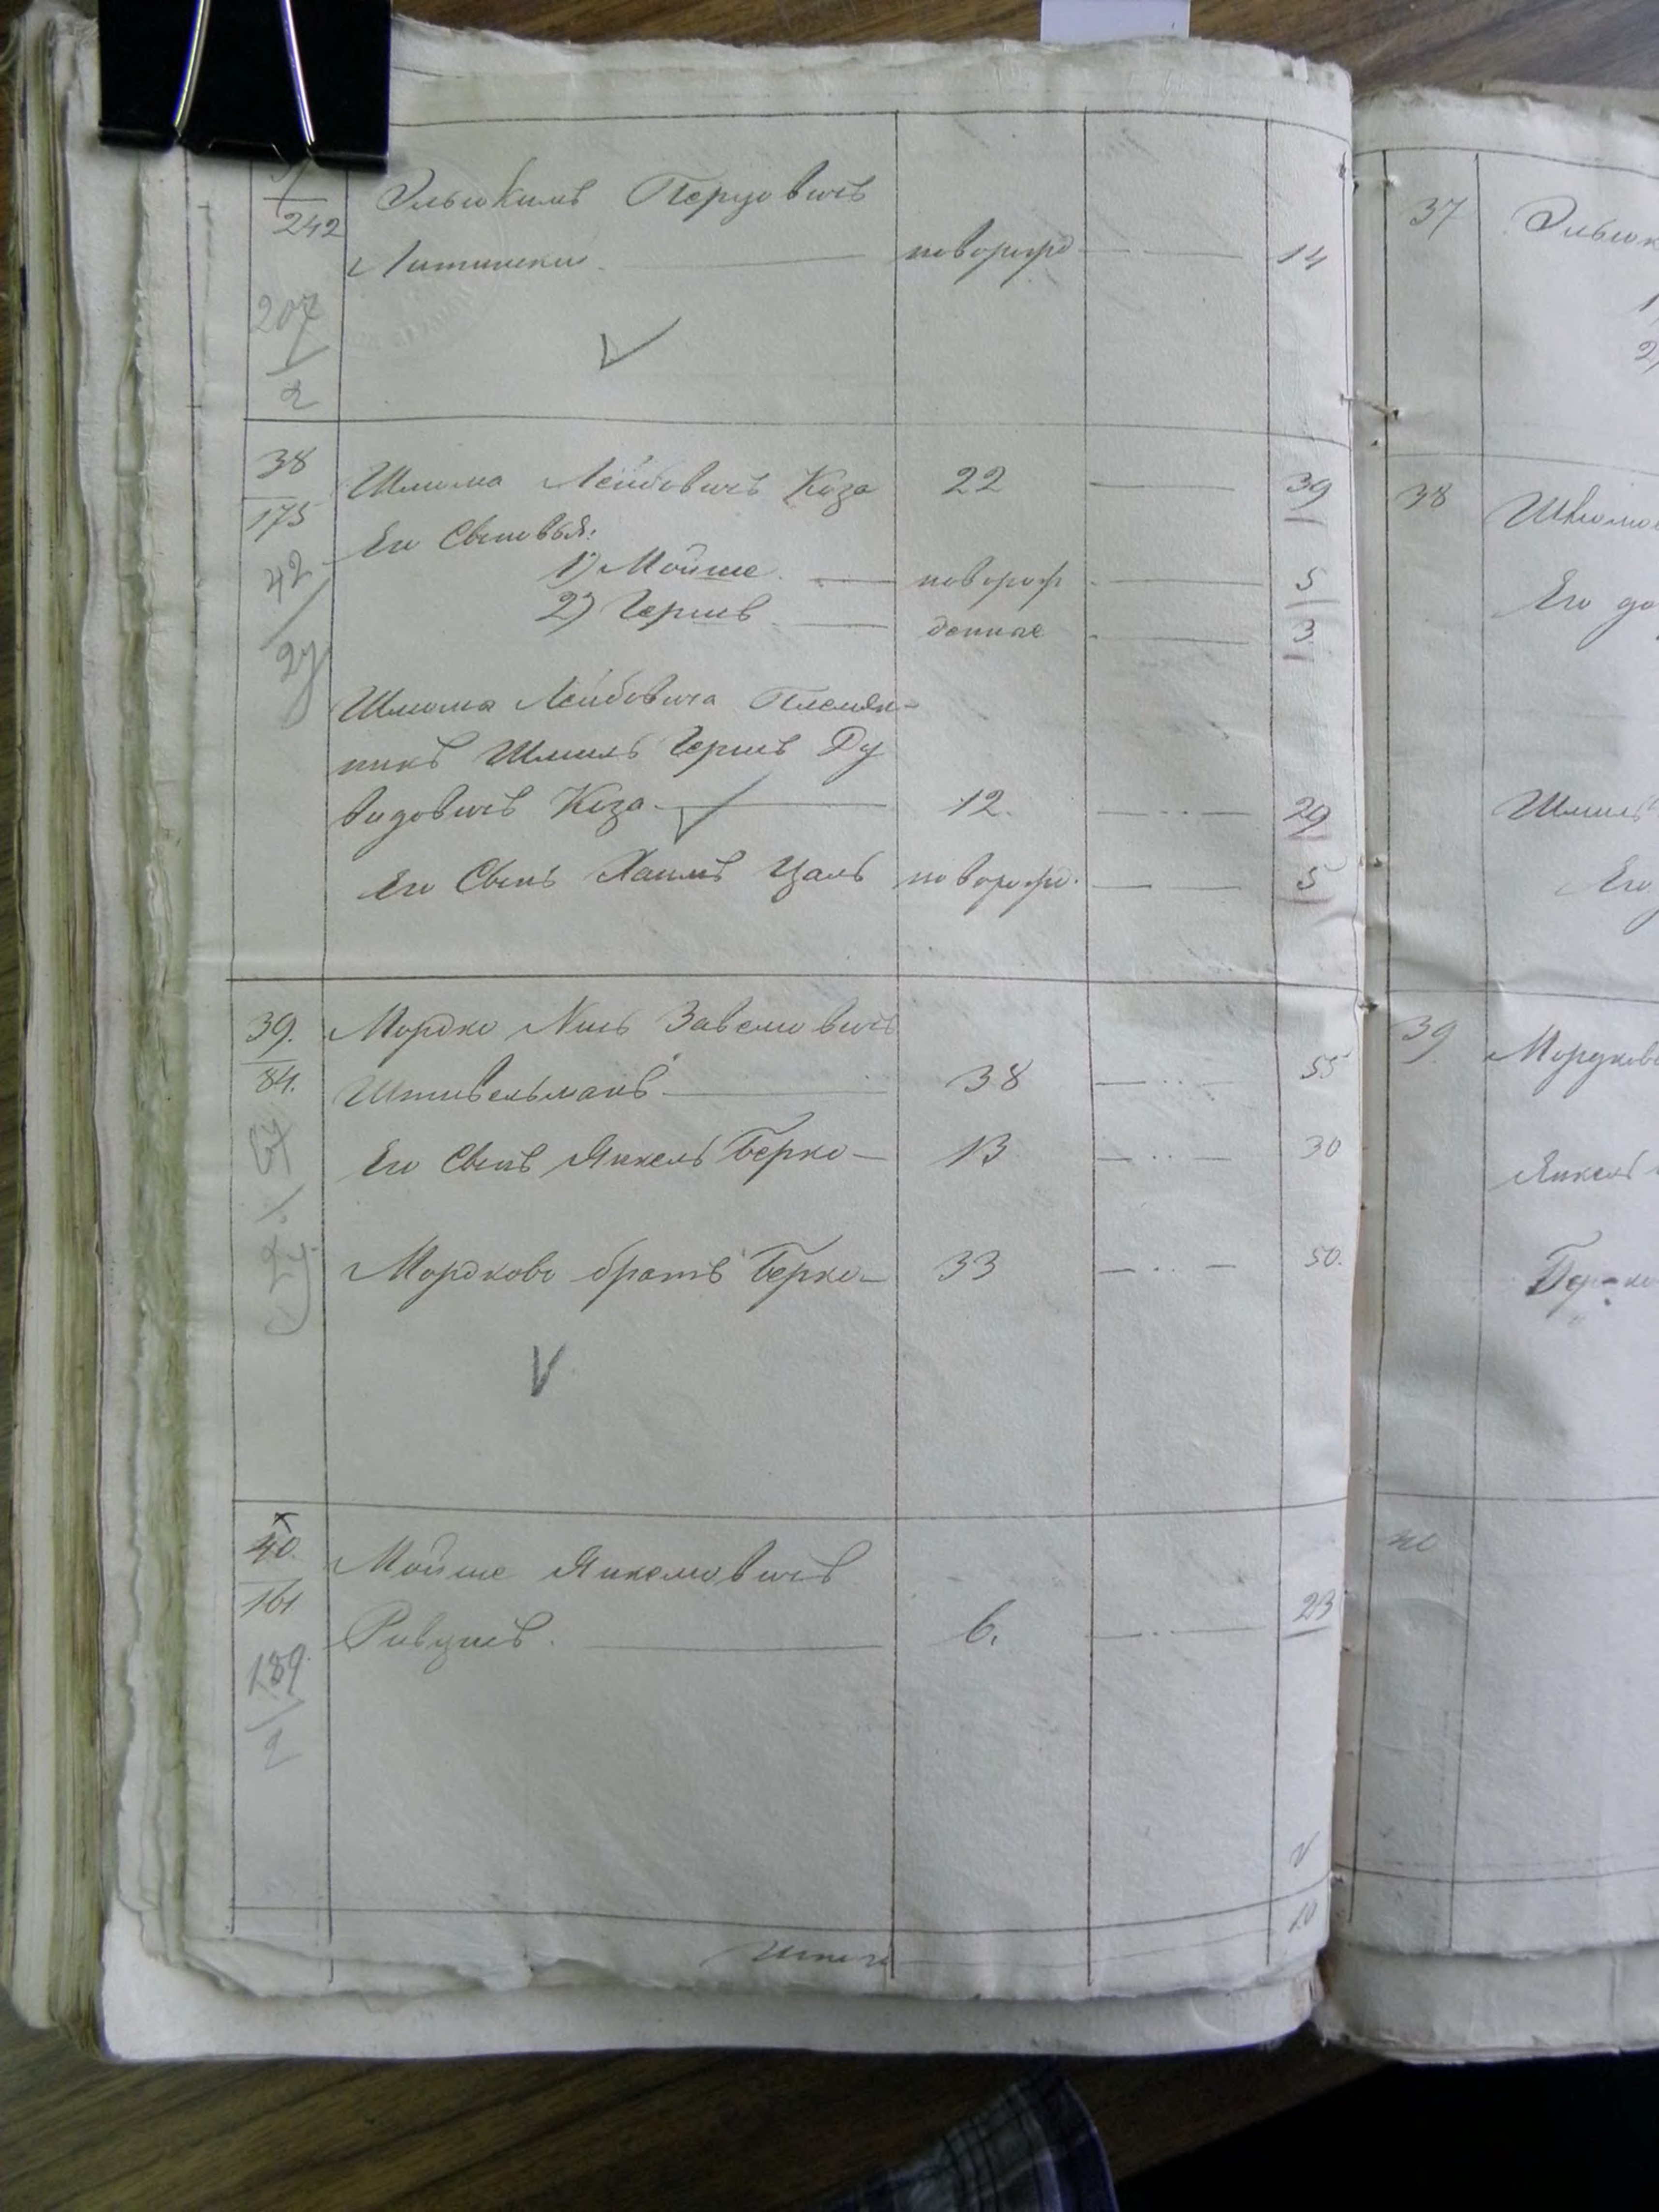 242
Эльокимъ Перцовичъ
Литинский новорожд 14
207
2
38
175
Шлиома Лейбовичъ Коза 22 39
Его Сыновья:
42
1) Мойше новорож 5
2) Гершъ денные 3
Шлиома Лейбовича Племян-
никъ Шмиль Гершъ Ду
видовичъ Коза 12. 29
Его Сынъ Хаимъ Цаль новорожд. 5
39.
84.
Мордко Завелиовичъ
Штивельманъ 38 55
Его Сынъ Янкель Берко 13 30
Мордково братъ Берко 33 50.
40.
161
Мойше Янкелиовичъ
6. 23
189
2
10
Итого
37 Эльок
1)
2)
38 Шлиомо
Его до
Шмиль
Его
39 Мордково
Янкель
Берко
40